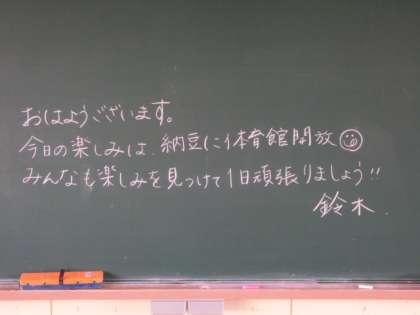 おはようございます。
今日の楽しみは、納豆に体育館開放
みんなも楽しみを見つけて1日頑張りましょう!!
鈴木.